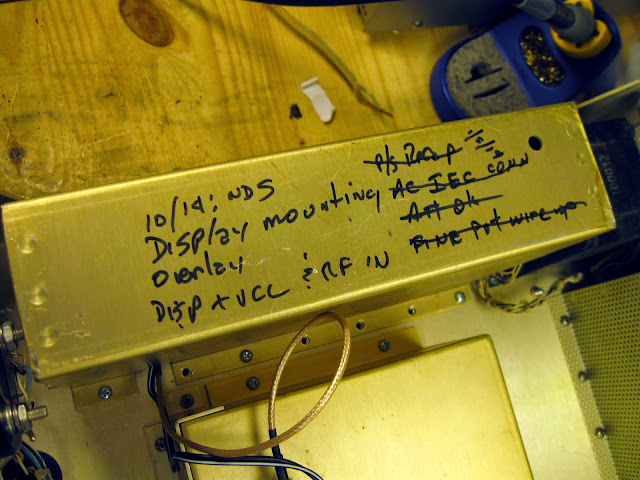 10/14: NDS
DISPLAY MOUNTING
OVERLAY
DISP + VCC & RF IN
P/S
AC IEC CONN
Att Ok
FINE POT WIRE UP